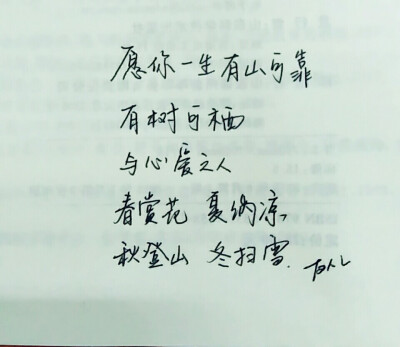 愿你一生有山可靠
有树可栖
与心爱之人
春赏花 夏纳凉
秋登山 冬扫雪.